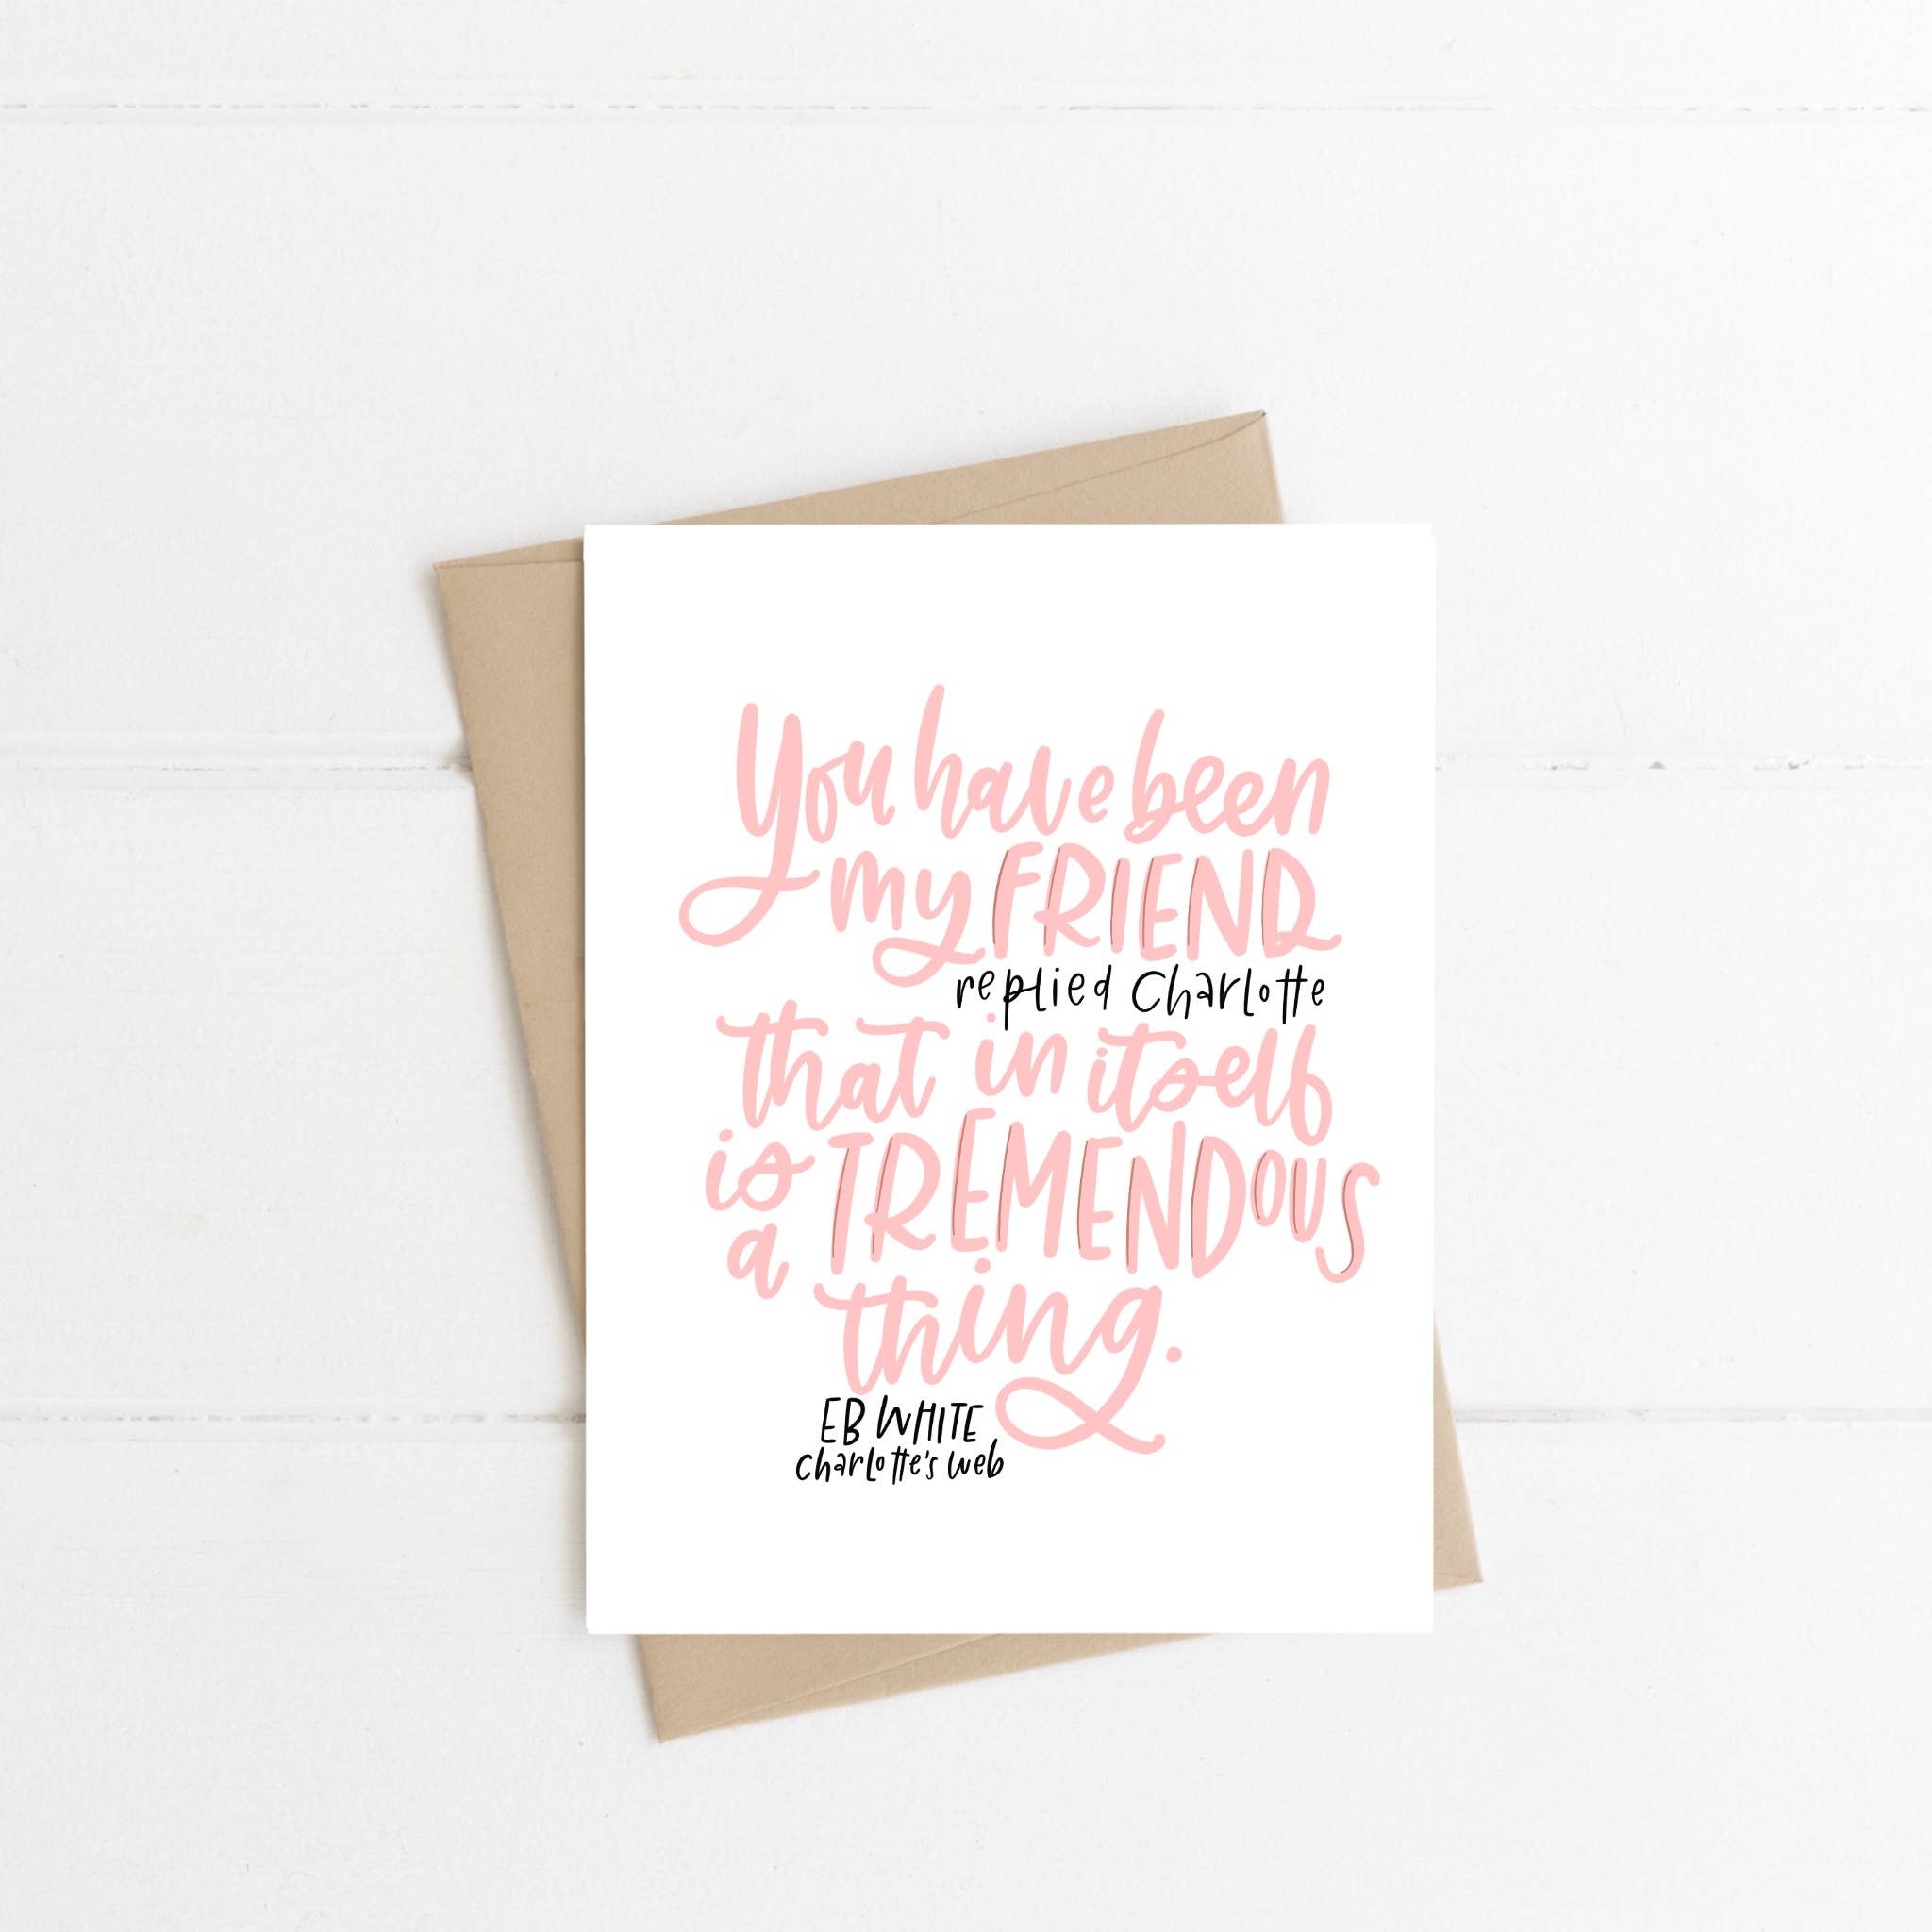 You have been
my FRIEND
replied Charlotte
that in itself
is a TREMENDOUS
thing.
EB WHITE
charlotte's web